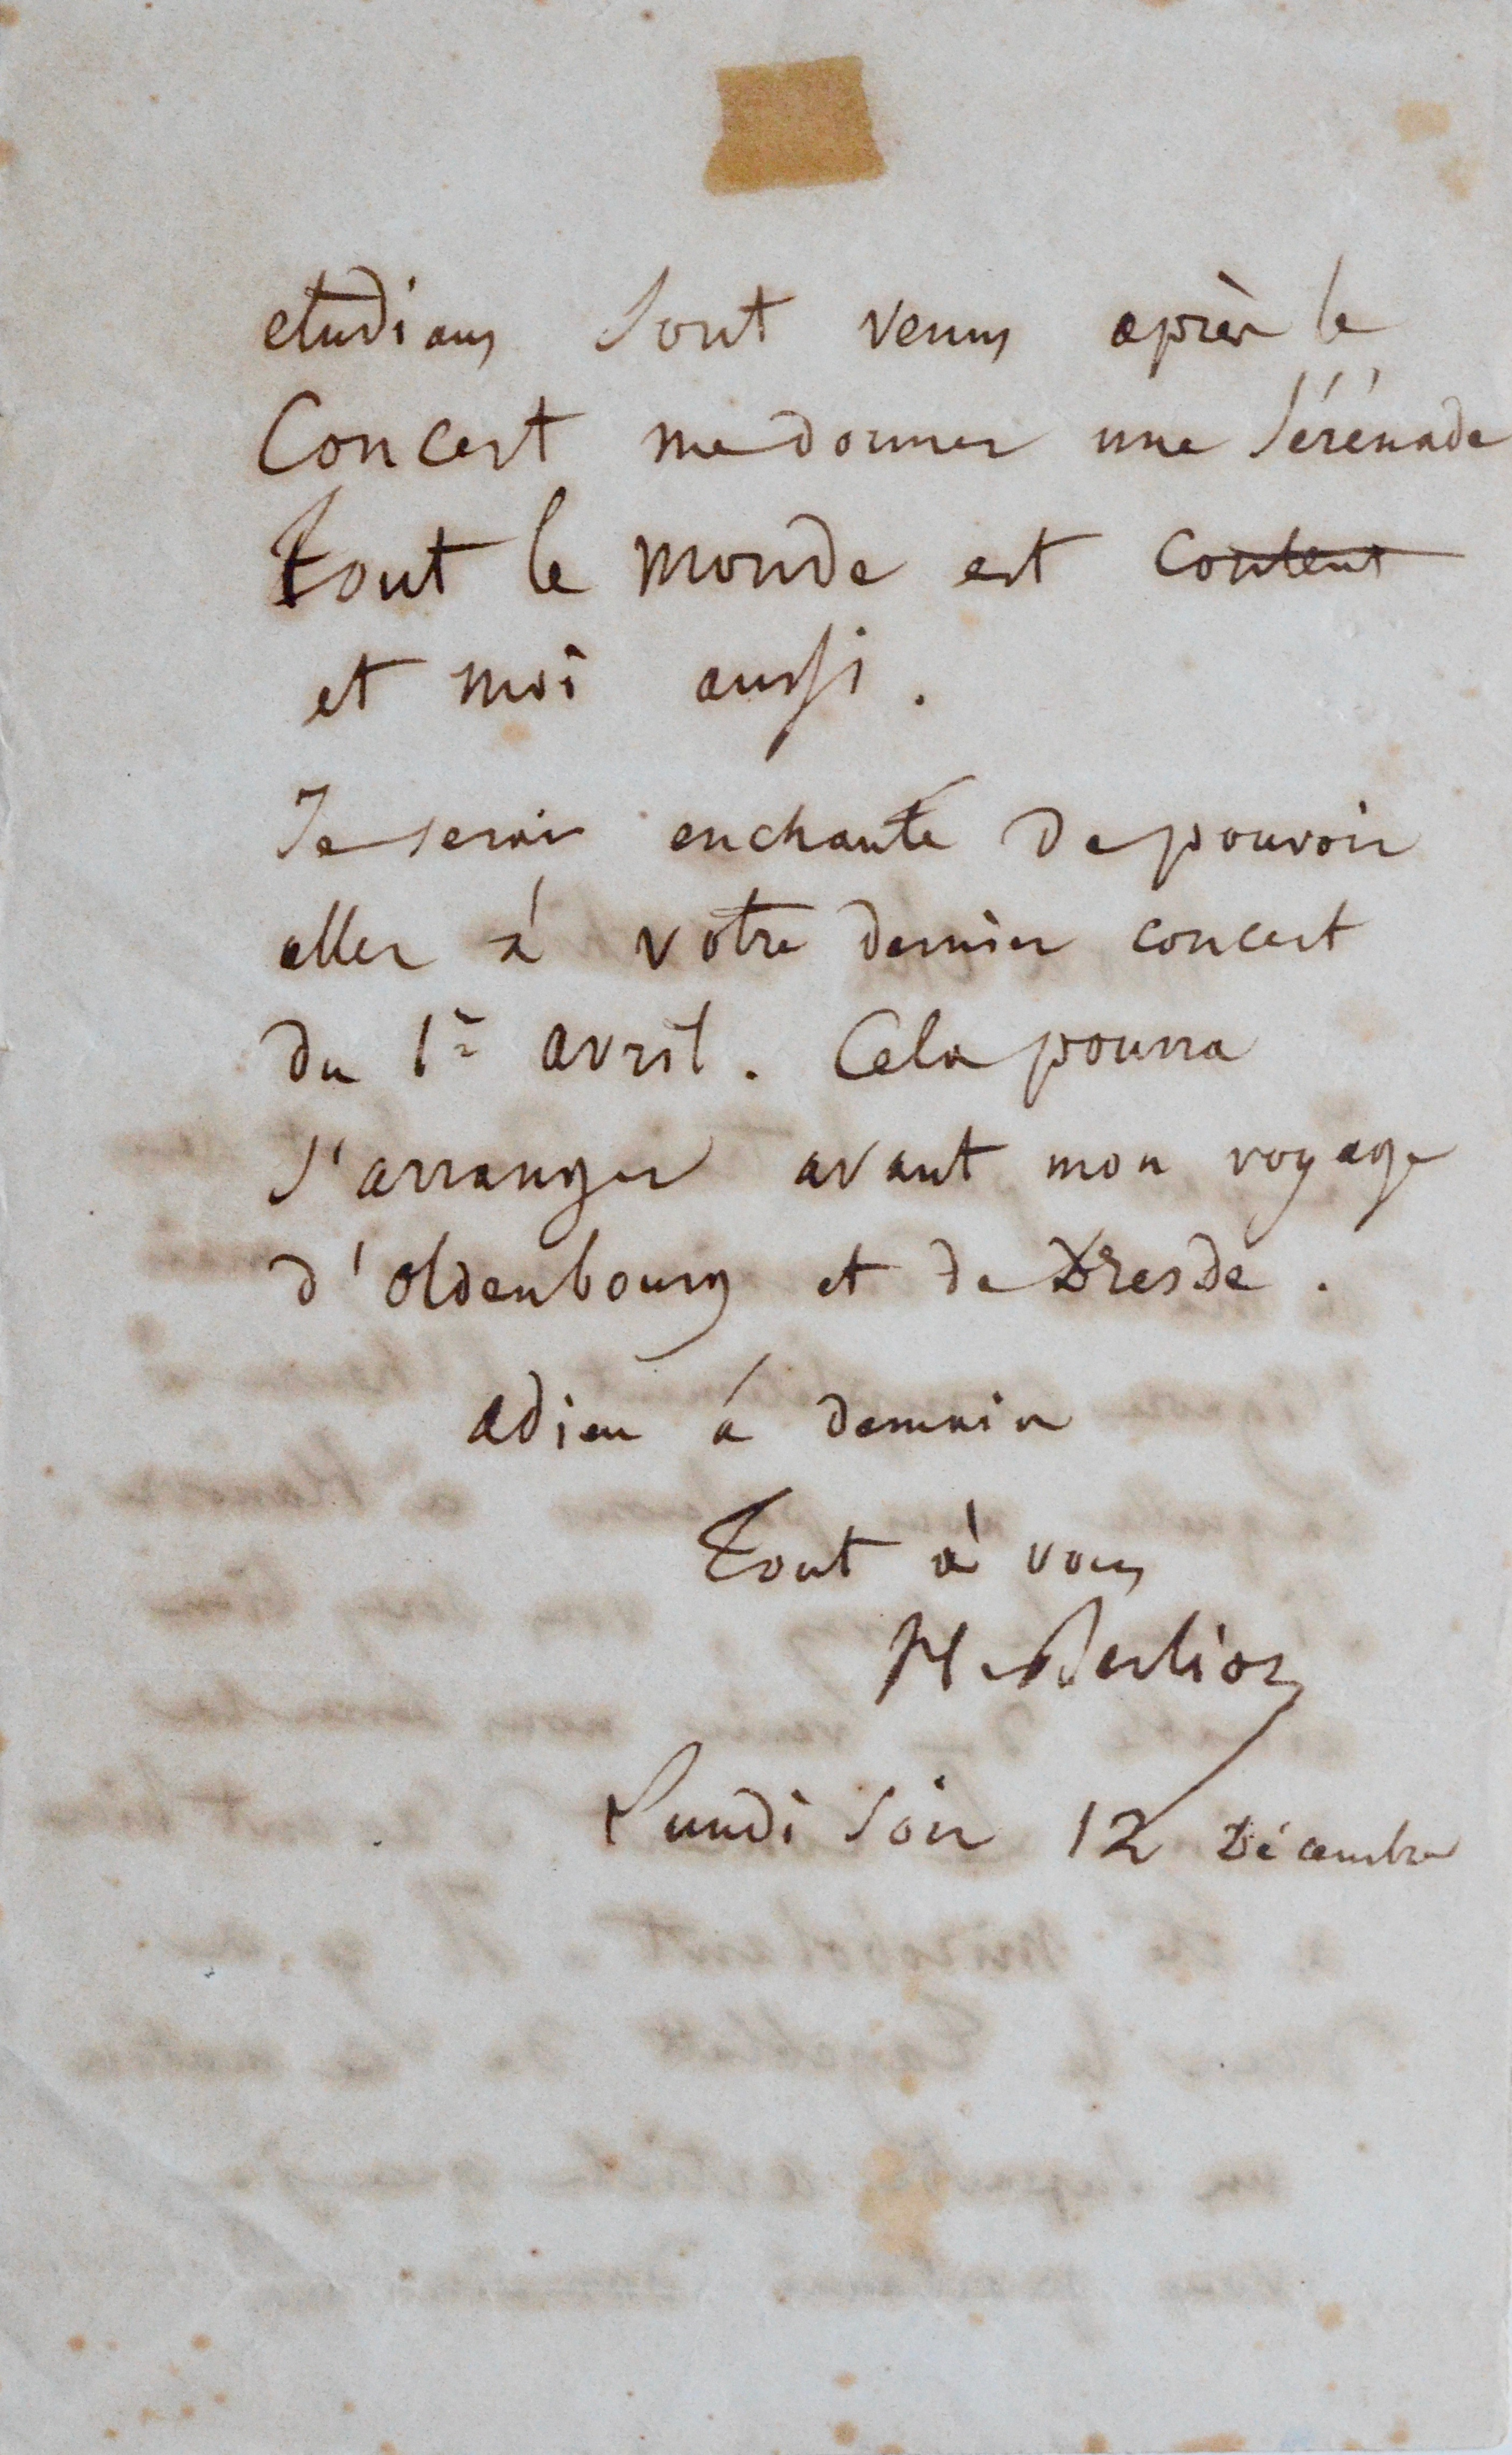 etudians sont venus après le
Concert me donner une sérénade
tout le monde est content
et moi aussi.
Je serais enchanté de pouvoir
aller à votre dernier concert
du 1er avril. Cela pourra
s'arranger avant mon voyage
d'oldenbourg et de Dresde.
adieu à demain
Tout à vous
H. Berlioz
Lundi soir 12 Décembre